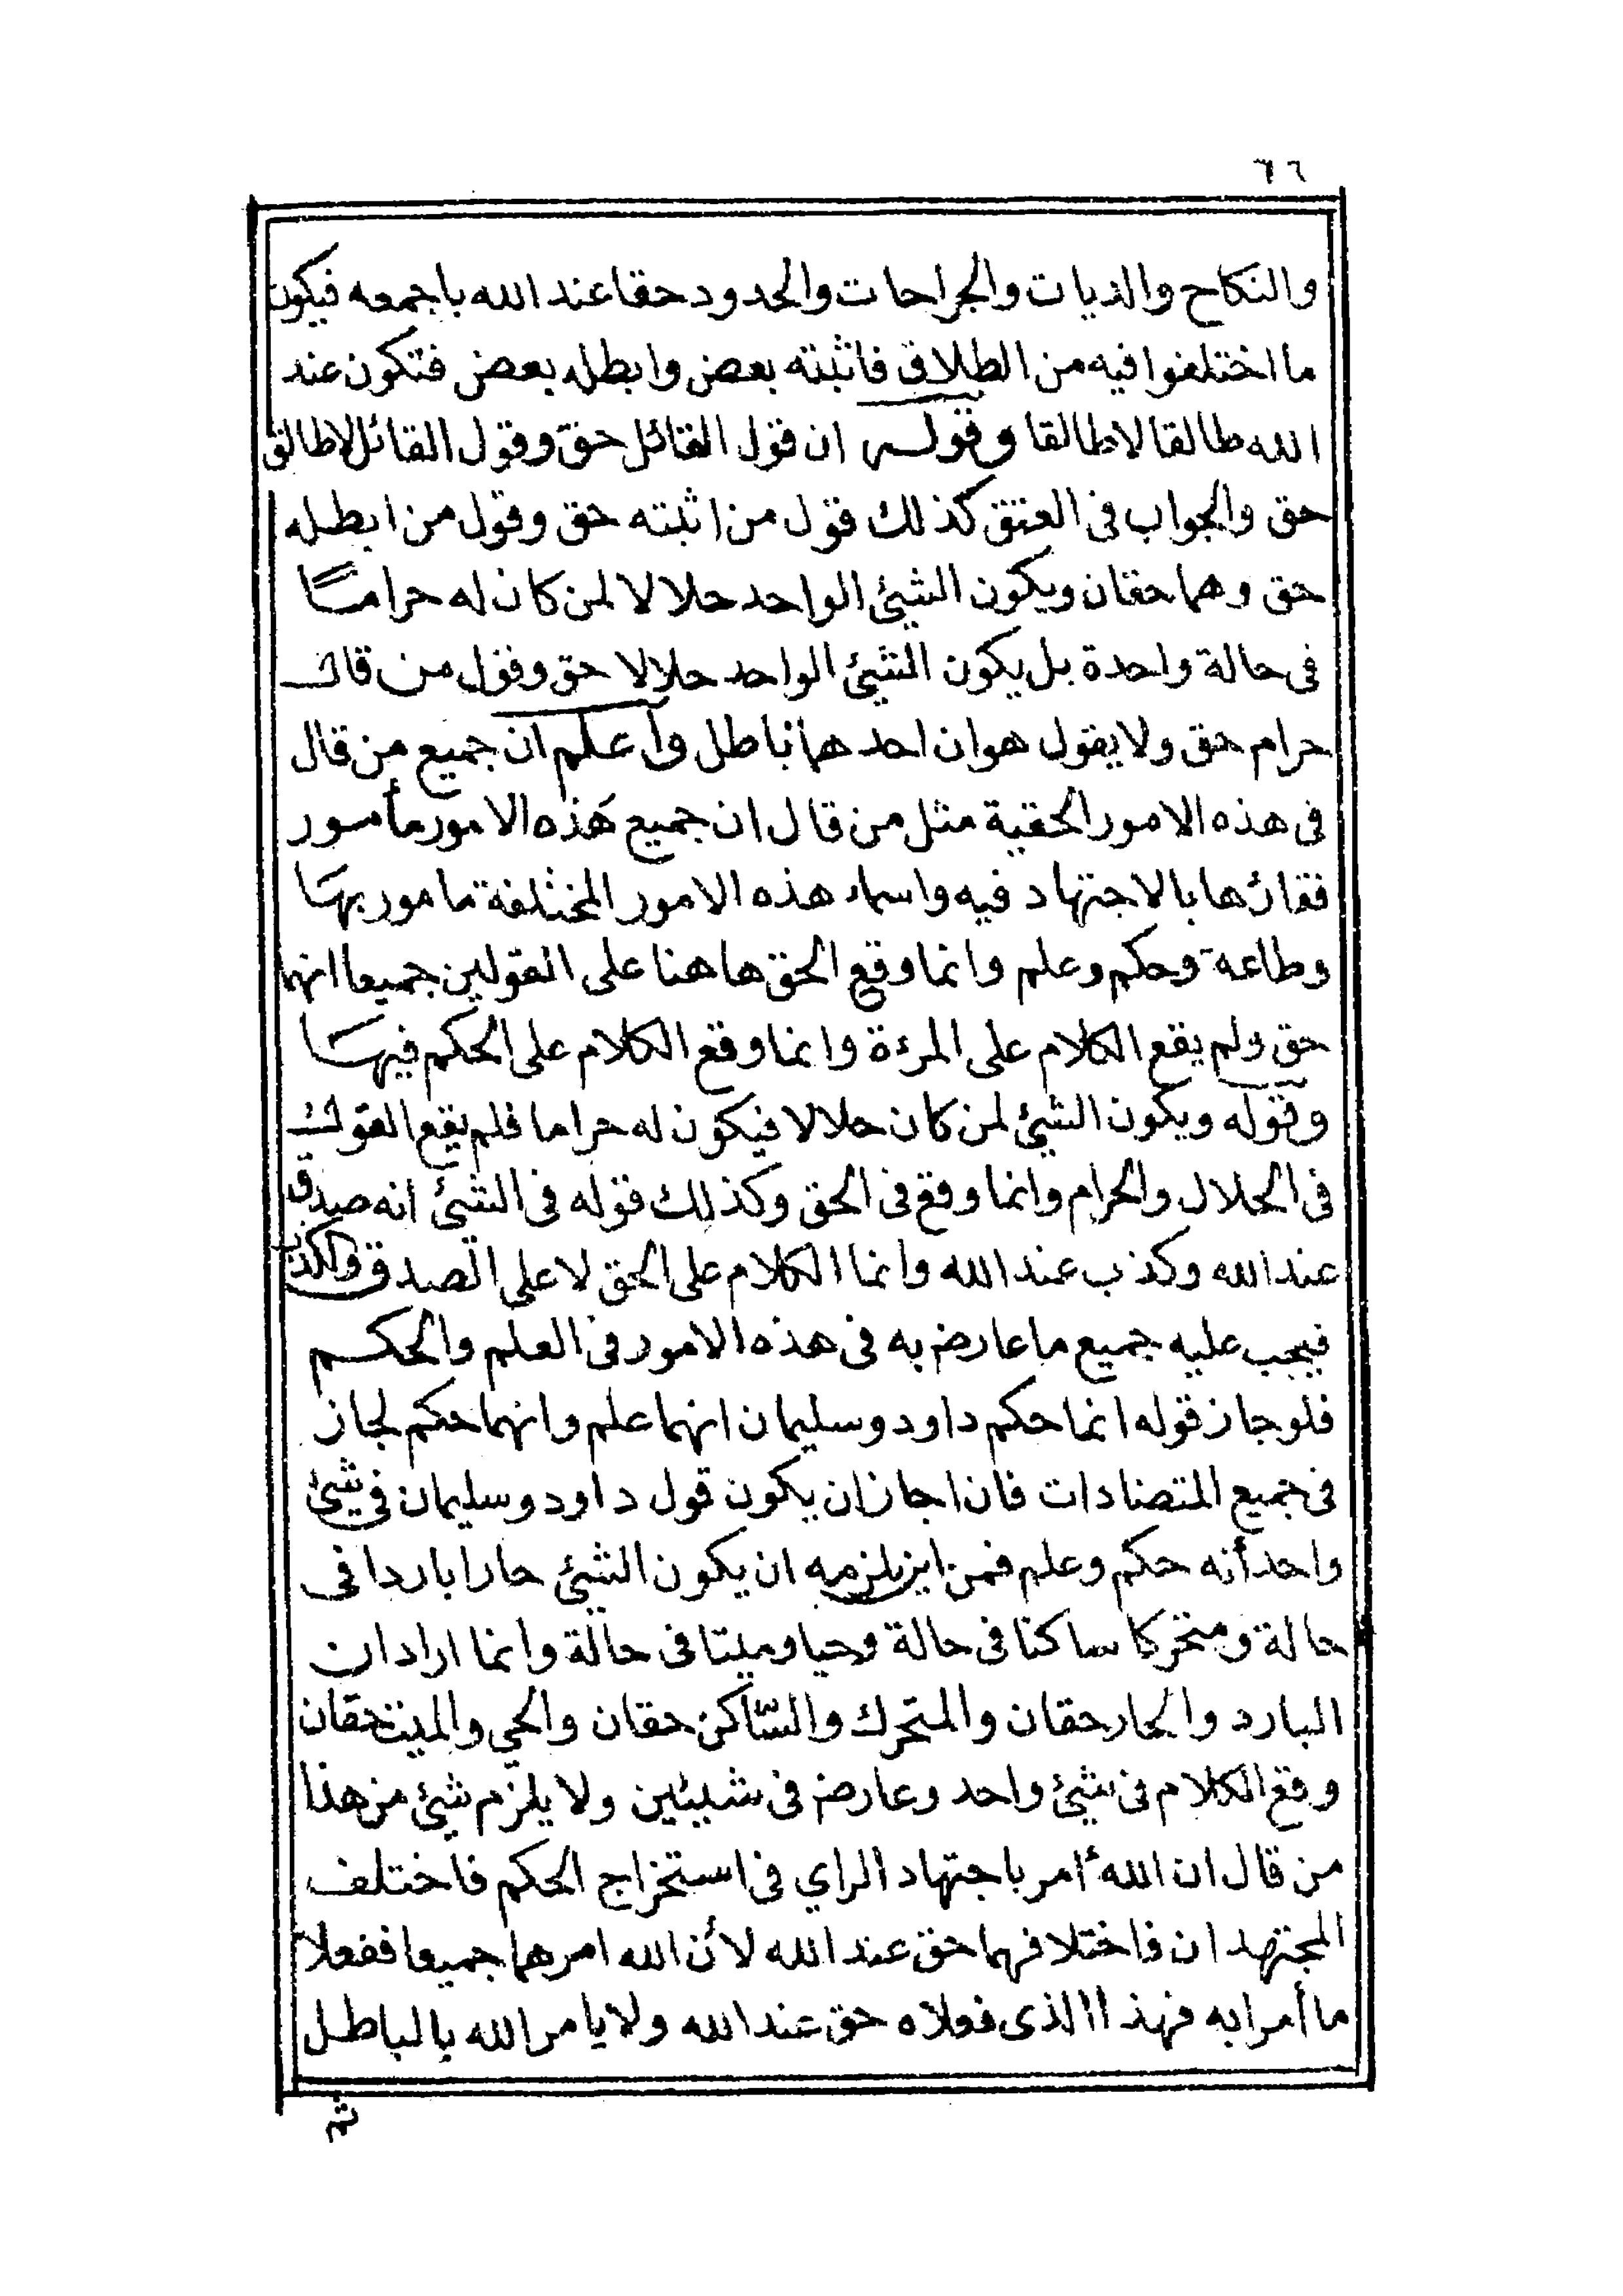 ٦٦
والنكاح والديات والجراحات والحدود حقا عند الله باجمعه فيكون
ما اختلفوا فيه من الطلاق فاثبته بعض وابطله بعض فتكون عند
الله طالقا لا طالقا وقوله ان قول القائل حق وقول القائل لا طالق
حق والجواب فى العتق كذلك قول من اثبته حق وقول من ابطله
حق وهما حقان ويكون الشيئ الواحد حلالا لمن كان له حراما
فى حالة واحدة بل يكون الشيئ الواحد حلالا حق وقول من قال
حرام حق ولا يقول هو ان احدهما باطل وآعلم ان جميع من قال
فى هذه الامور الحقية مثل من قال ان جميع هذه الامور مأمور
فقائرها بالاجتهاد فيه واسماء هذه الامور المختلفة مامور بها
وطاعة وحكم وعلم وانما وقع الحق هاهنا على القولين جميعا انهما
حق ولم يقع الكلام على المرءة وانما وقع الكلام على الحكم فيها
وقوله ويكون الشيئ لمن كان حلالا فيكون له حراما فلم يقع القول
فى الحلال والحرام وانما وقع فى الحق وكذلك قوله فى الشيئ انه صدق
عند الله وكذب عند الله وانما الكلام على الحق لا على الصدق والكذب
فيجب عليه جميع ما عارض به فى هذه الامور فى العلم والحكم
فلو جاز قوله انما حكم داود وسليمان انهما علم وانهما حكم لجاز
فى جميع المتضادات فان اجاز ان يكون قول داود وسليمان فى شيئ
واحد أنه حكم وعلم فمن اين يلزمه ان يكون الشيئ حارا باردا فى
حالة ومتحركا ساكنا فى حالة وحيا وميتا فى حالة وانما اراد ان
البارد والحار حقان والمتحرك والساكن حقان والحي والميت حقان
وقع الكلام فى شيئ واحد وعارض فى شيئين ولا يلزم شيئ من هذا
من قال ان الله أمر باجتهاد الراي فى استخراج الحكم فاختلف
المجتهدان فاختلافهما حق عند الله لأن الله امرهما جميعا ففعلا
ما أمرا به فهذا الذى فعلاه حق عند الله ولا يامر الله بالباطل
ثم